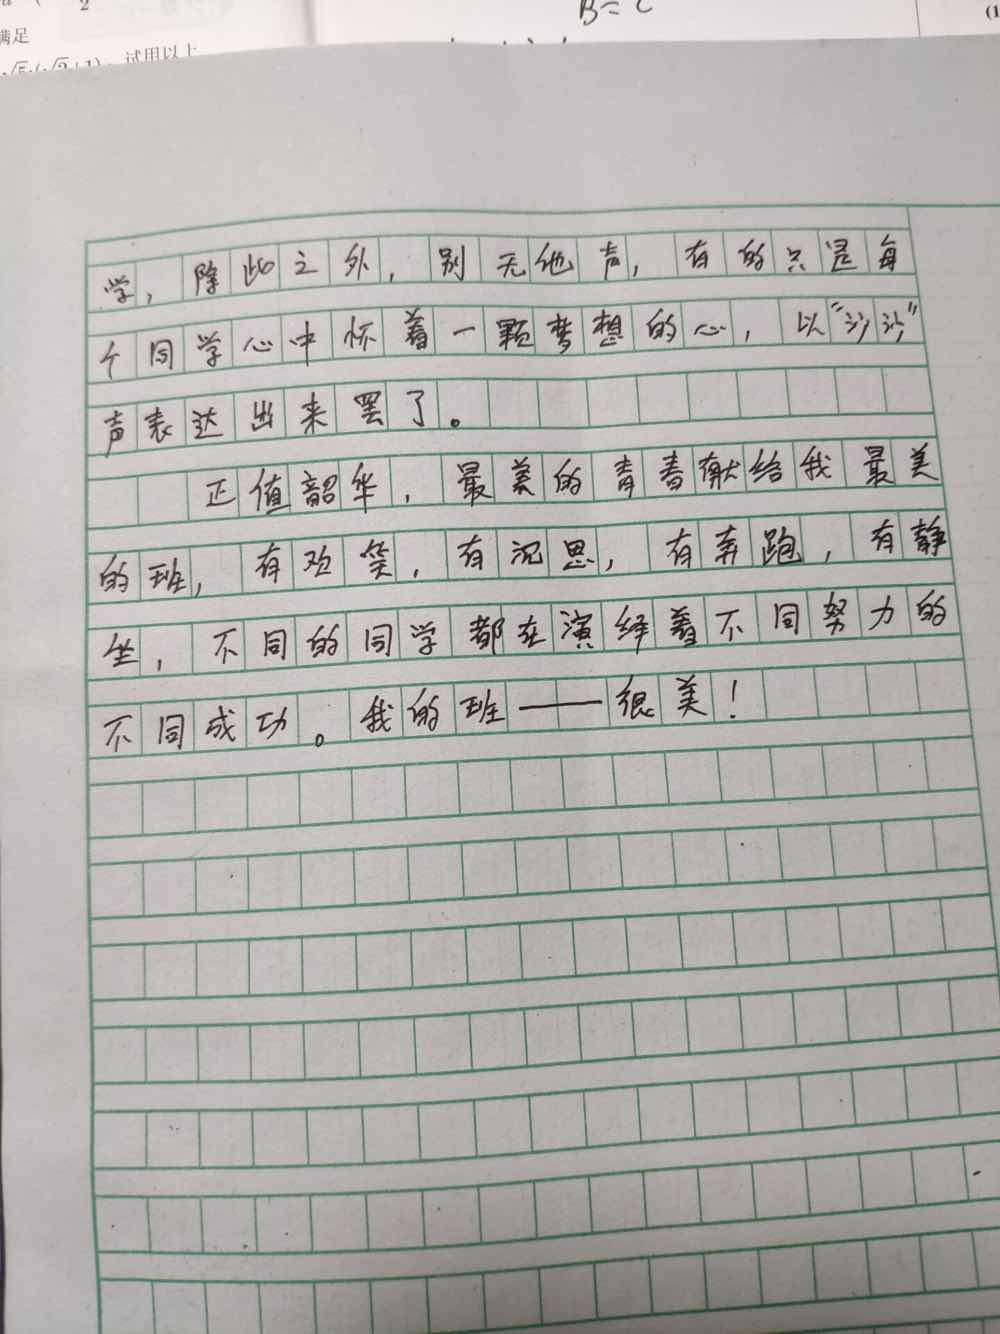 2
B = C
(1
满足
试用以上
学，除此之外，别无他声，有的只是每
个同学心中怀着一颗梦想的心，以“沙沙”
声表达出来罢了。
正值韶华，最美的青春献给我最美
的班，有欢笑，有沉思，有奔跑，有静
坐，不同的同学都在演绎着不同努力的
不同成功。我的班——很美！